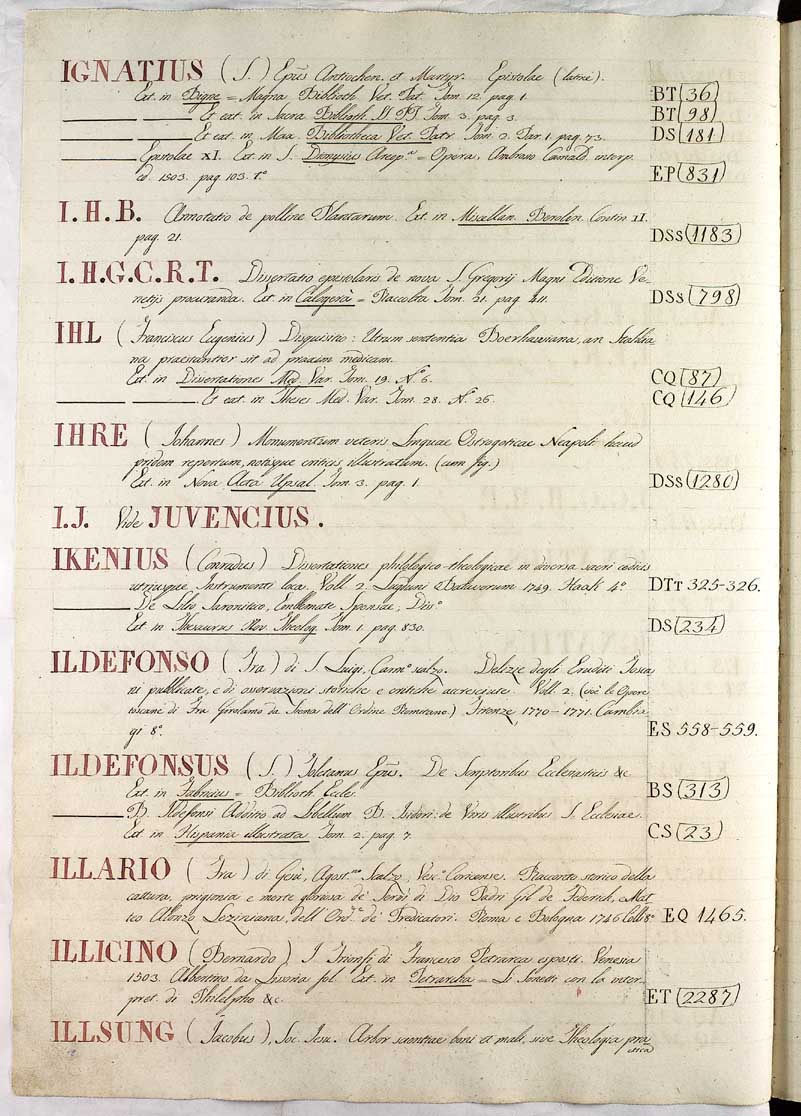 IGNATIUS (S.) Epũs Antiochen. et Martyr. Epistolae (latine).
Ext. in Bigne = Magna Biblioth. Vet. Pat. Tom. 12. pag. 1. BT (36)
Et ext. in Sacra Biblioth. SS. PP. Tom. 3. pag. 3. BT (98)
Et ext. in Max. Bibliotheca Vet. Patr. Tom. 2. Par. 1. pag. 73. DS (181)
Epistolae XI. Ext. in S. Dionysius Areop. = Opera, Ambrosio Camald. interp.
ed. 1503. pag. 103. tº EP (831)
I.H.B. Annotatio de polline Plantarum. Ext. in Miscellan. Berolin. Contin. II.
pag. 21. DSs (1183)
I.H.G.C.R.T. Dissertatio epistolaris de nova S. Gregorij Magni Editione Ve-
netijs procuranda. Ext. in Calogerà = Raccolta Tom. 21. pag. 411. DSs (798)
IHL (Franciscus Eugenius) Disquisitio: Utrum sententia Boerhaaviana, an Stahlia
na praestantior sit ad praxim medicam.
Ext. in Dissertationes Med. Var. Tom. 19. Nº 6. CQ (87)
Et ext. in Theses Med. Var. Tom. 28. Nº 26. CQ (146)
IHRE (Johannes) Monumentum veteris Linguae Ostrogoticae Neapoli haud
pridem repertum, notisque criticis illustratum. (cum fig.)
Ext. in Nova Acta Upsal. Tom. 3. pag. 1. DSs (1280)
I.J. Vide JUVENCIUS.
IKENIUS (Conradus) Dissertationes philologico-theologicae in diversa sacri codicis
utriusque Instrumenti loca. Voll. 2. Lugduni Batavorum 1749. Haak 4º. DTt 325-326.
De Lilio Saronitico, Emblemate Sponsae, Disº
Ext. in Thesaurus Nov. Theolog. Tom. 1. pag. 830. DS (234)
ILDEFONSO (Fra) di S. Luigi, Carmº scalzo. Delizie degli Eruditi Tosca
ni pubblicate, e di osservazioni storiche e critiche accresciute. Voll. 2. (cioè le Opere
toscane di Fra Girolamo da Siena dell'Ordine Romitano.) Firenze, 1770-1771. Cambia
gi 8º. ES 558-559.
ILDEFONSUS (S.) Toletanus Epũs. De Scriptoribus Ecclesiasticis &c.
Ext. in Fabricius = Biblioth. Eccles. BS (313)
B. Ildefonsi Additio ad Libellum B. Isidori: de Viris illustribus S. Ecclesiae.
Ext. in Hispania illustrata Tom. 2. pag. 7. CS (23)
ILLARIO (Fra) di Gesù, Agostno Scalzo, Vescº Coricense. Racconto storico della
cattura, prigionia e morte gloriosa de' Servi di Dio Padri Gil de Federich, e Mat
teo Alonzo Leziniana, dell'Ord.e de' Predicatori. Roma e Bologna 1746. Colli 8º. EQ 1465.
ILLICINO (Bernardo) I Trionfi di Francesco Petrarca esposti. Venesia
1503. Albertino da Lisona fol. Ext. in Petrarcha = Li Sonetti con la inter-
pret. di Philelpho &c. ET (2287)
ILLSUNG (Jacobus), Soc. Jesu. Arbor scientiae boni et mali, sive Theologia pra
ctica